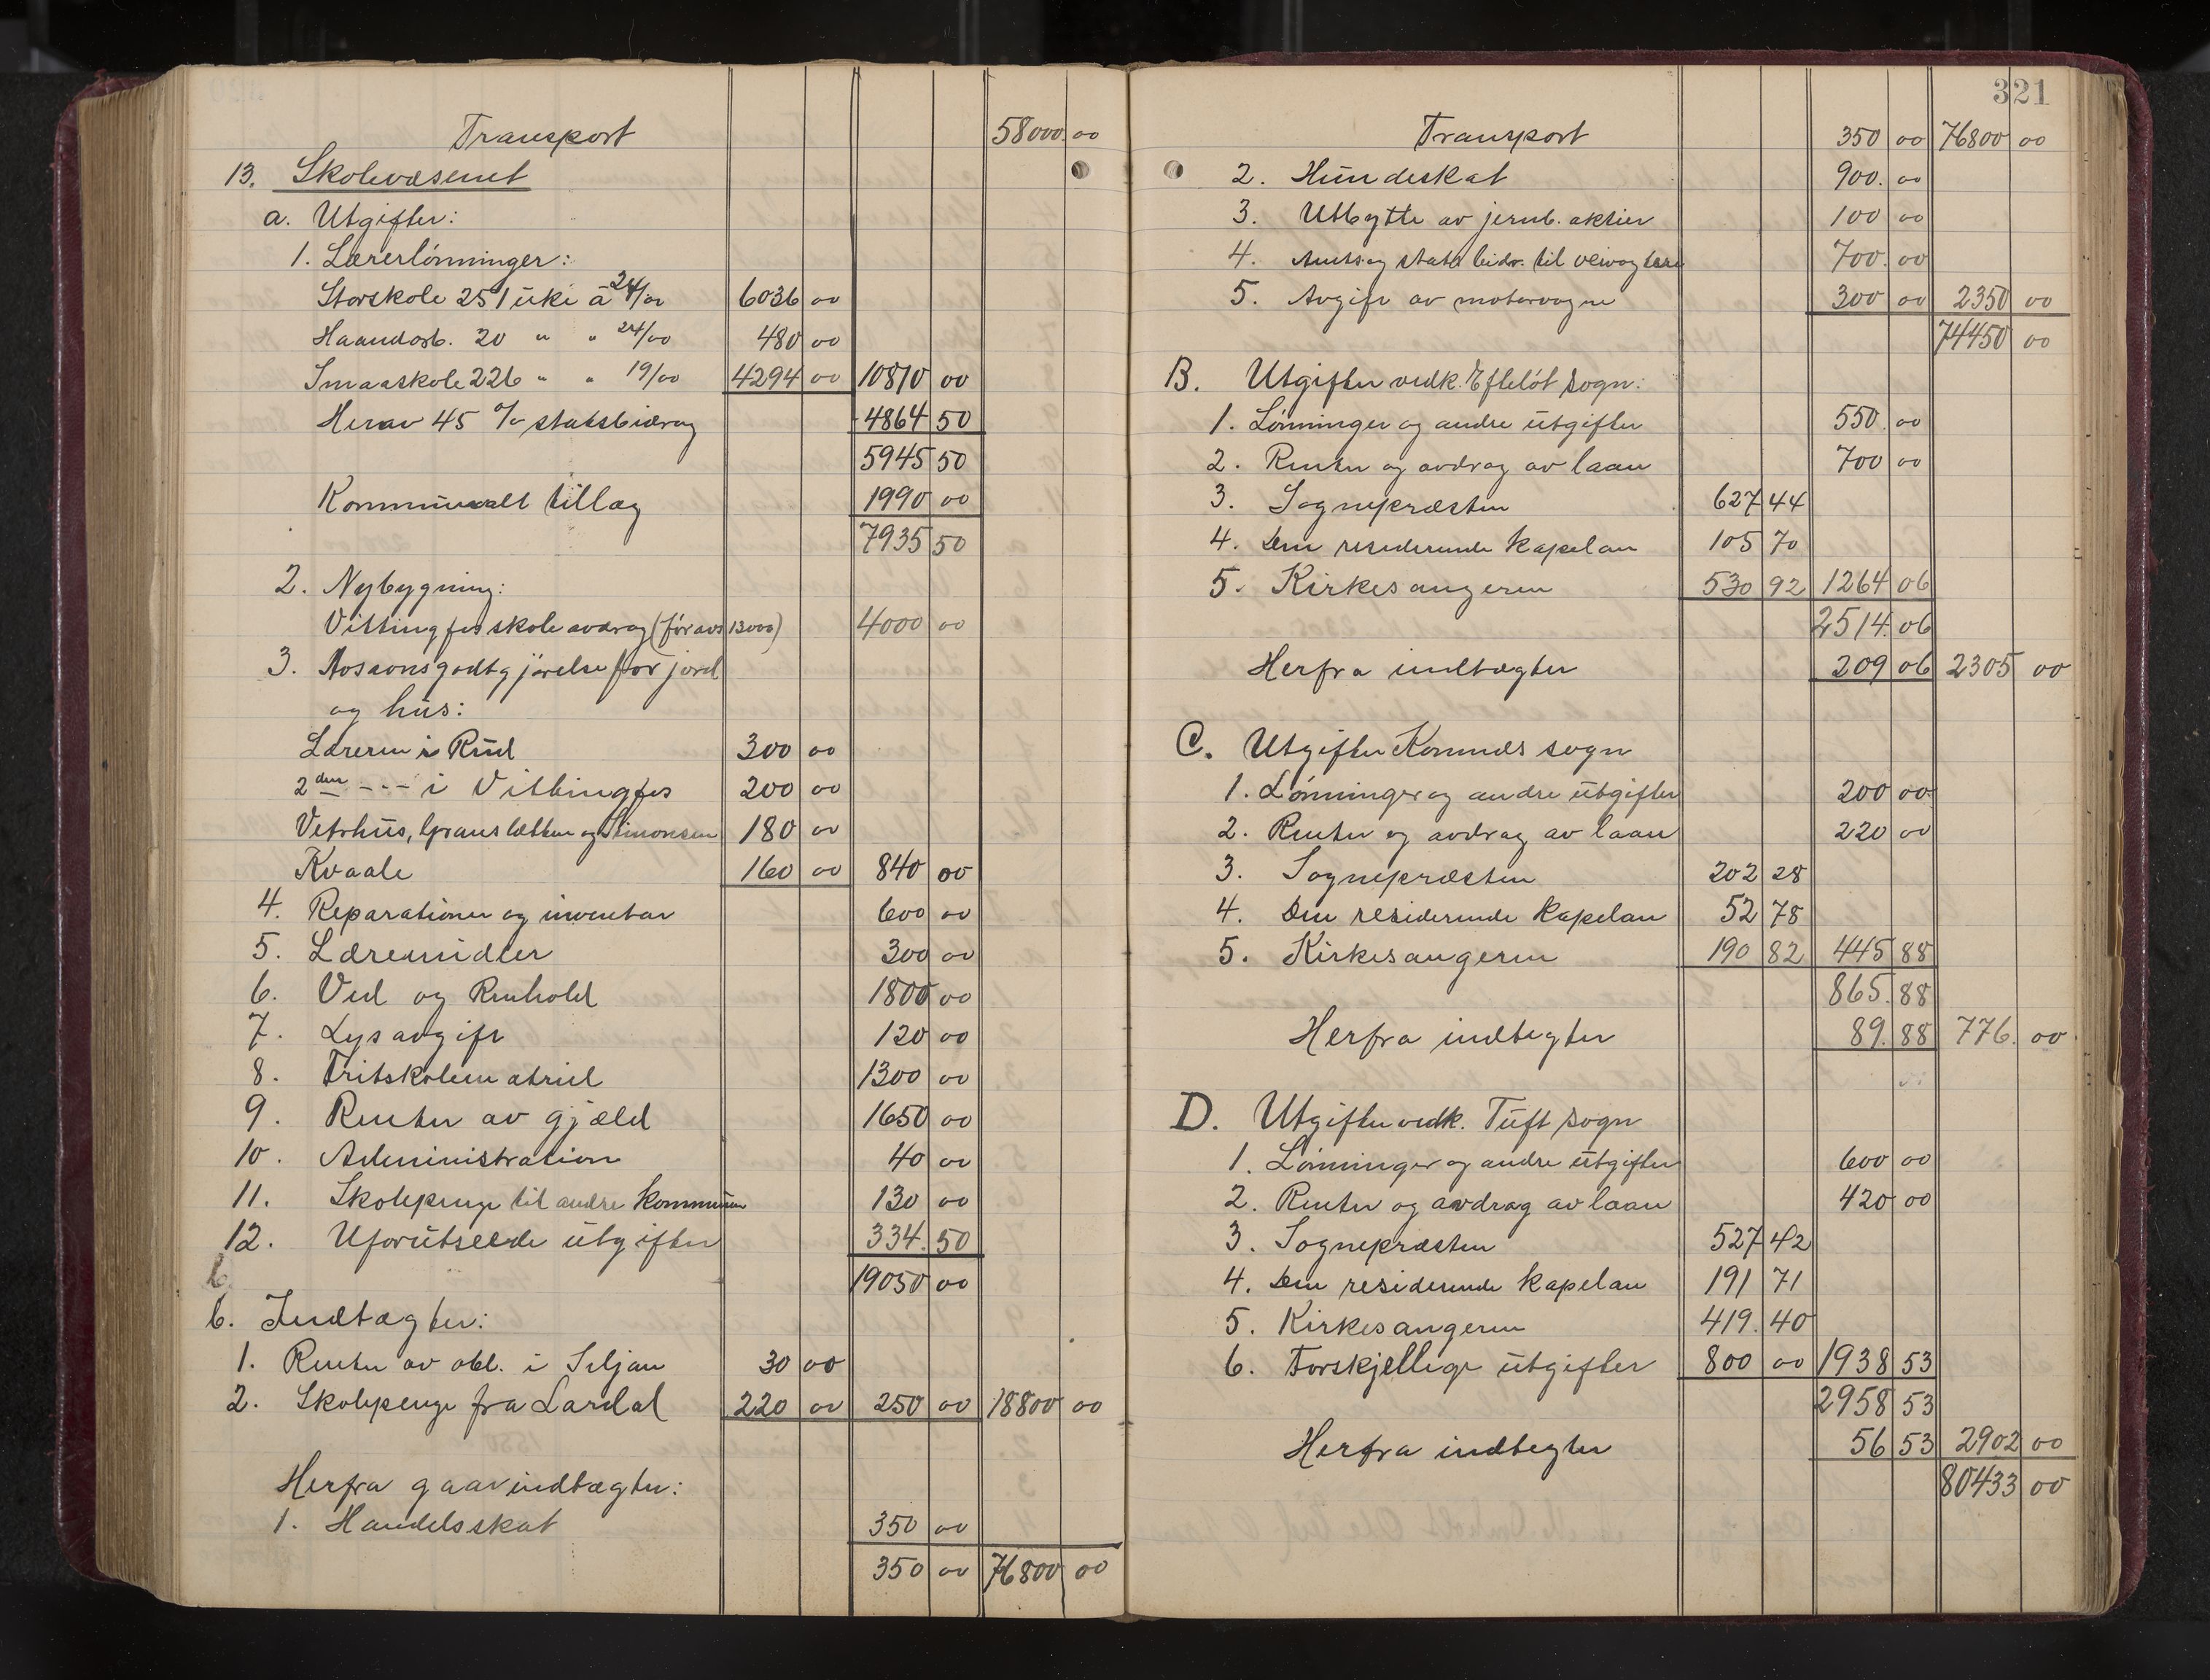 Transport 58000.00
13. Skolevæsenet
a. Utgifter:
1. Lærerlønninger:
Storskole 251 uke á 24/00 6036 00
Haandarb. 20 " " 24/00 480 00
Smaaskole 226 " " 19/00 4294 00 10810 00
Herav 45 % statsbidrag 4864 50
5945 50
Kommunalt tillæg 1990 00
7935 50
2. Nybygning:
Vittingfos skole avdrag (før avs 13000) 4000 00
3. godtgjørelse for jord
og hus:
Læreren i Rud 300 00
2den - - - i Vittingfos 200 00
Vethus, Granslætten og Simonsen 180 00
Kvaale 160 00 840 00
4. Reparationer og inventar 600 00
5. Læremidler 300 00
6. Ved og Renhold 1800 00
7. Lysavgift 120 00
8. Fritskolematriel 1300 00
9. Renter av gjæld 1650 00
10. Administration 40 00
11. Skolepenge til andre kommuner 130 00
12. Uforutseede utgifter 334.50
19050 00
b. Indtægter:
1. Renter av obl. i Siljan 30 00
2. Skolepenge fra Lardal 220 00 250 00 18800 00
Herfra gaar indtægter:
1. Handelsskat 350 00
350 00 76800 00
321
Transport 350 00 76800 00
2. Hundeskat 900.00
3. Utbytte av jernb. aktier 100 00
4. Amts og stats bidr. til veivogtere 700.00
5. Avgift av motorvogne 300 00 2350 00
74450 00
B. Utgifter vedk. Efteløt sogn:
1. Lønninger og andre utgifter 550.00
2. Renter og avdrag av laan 700 00
3. Sognepræsten 627 44
4. Den residerende kapelan 105 70
5. Kirkesangeren 530 92 1264 06
2514.06
Herfra indtægter 209 06 2305 00
C. Utgifter Komnæs sogn
1. Lønninger og andre utgifter 200 00
2. Renter og avdrag av laan 220 00
3. Sognepræsten 202 28
4. Den residerende kapelan 52 78
5. Kirkesangeren 190 82 445 88
865.88
Herfra indtegter 89.88 776.00
D. Utgifter vedk. Tuft sogn
1. Lønninger og andre utgifter 600 00
2. Renter og avdrag av laan 420 00
3. Sognepræsten 527 42
4. Den residerende kapelan 191 71
5. Kirkesangeren 419.40
6. Forskjellige utgifter 800 00 1938 53
2958 53
Herfra indtegter 56 53 2902 00
80433 00